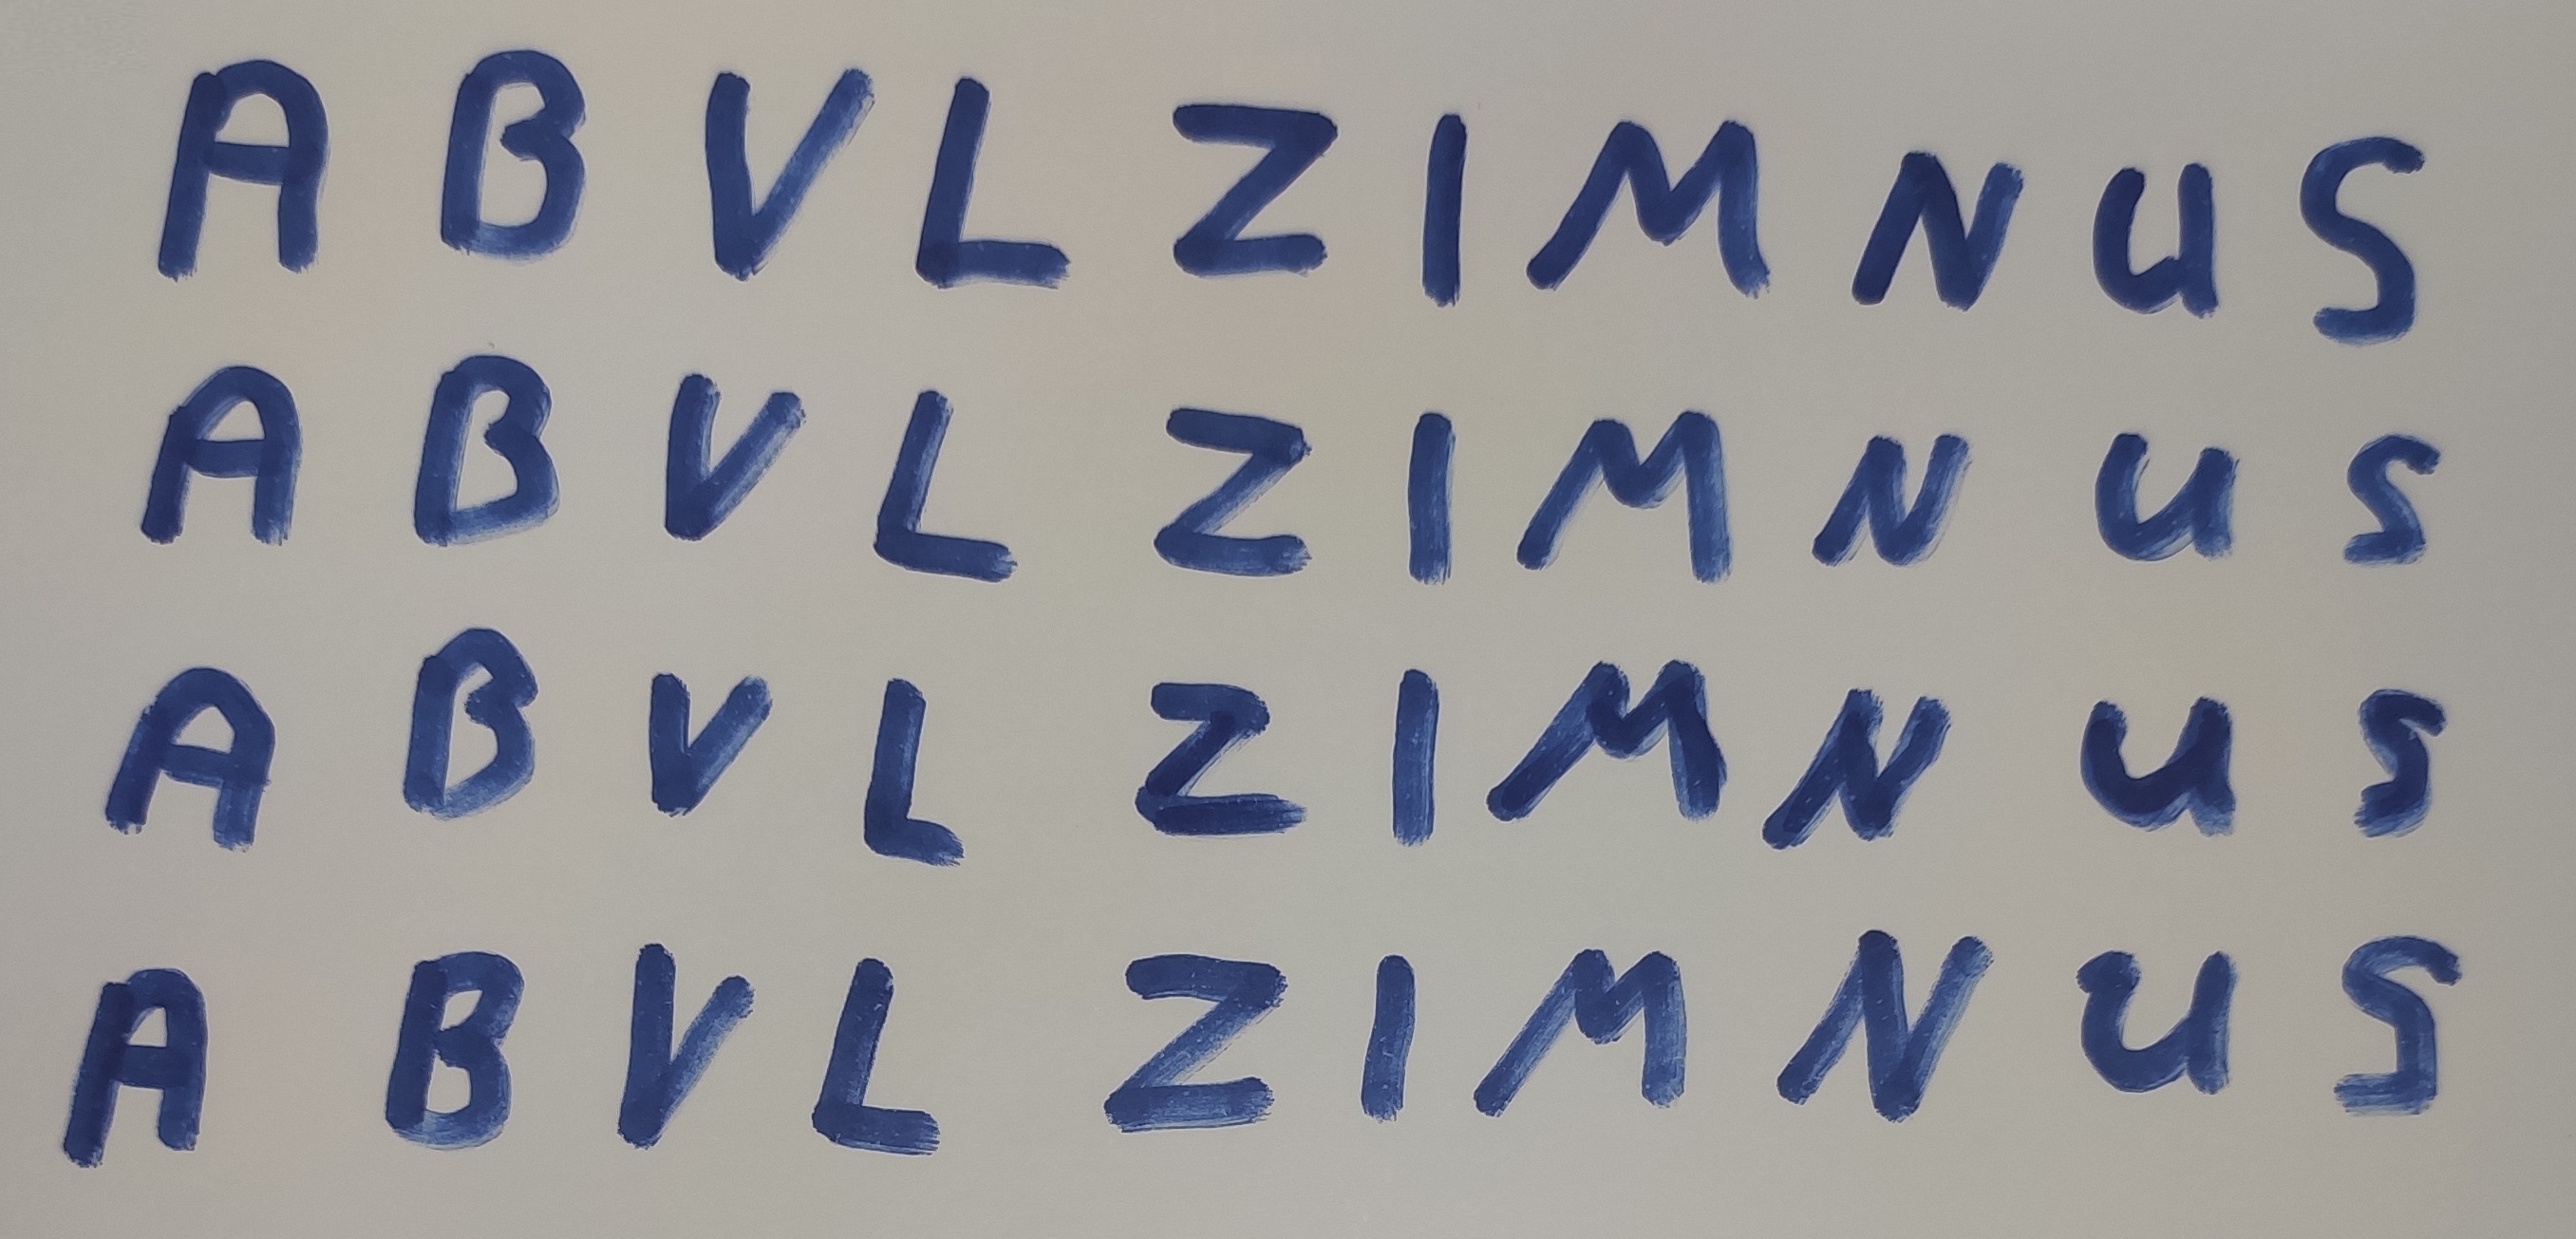 A B V L Z I M N U S
A B V L Z I M N U S
A B V L Z I M N U S
A B V L Z I M N U S